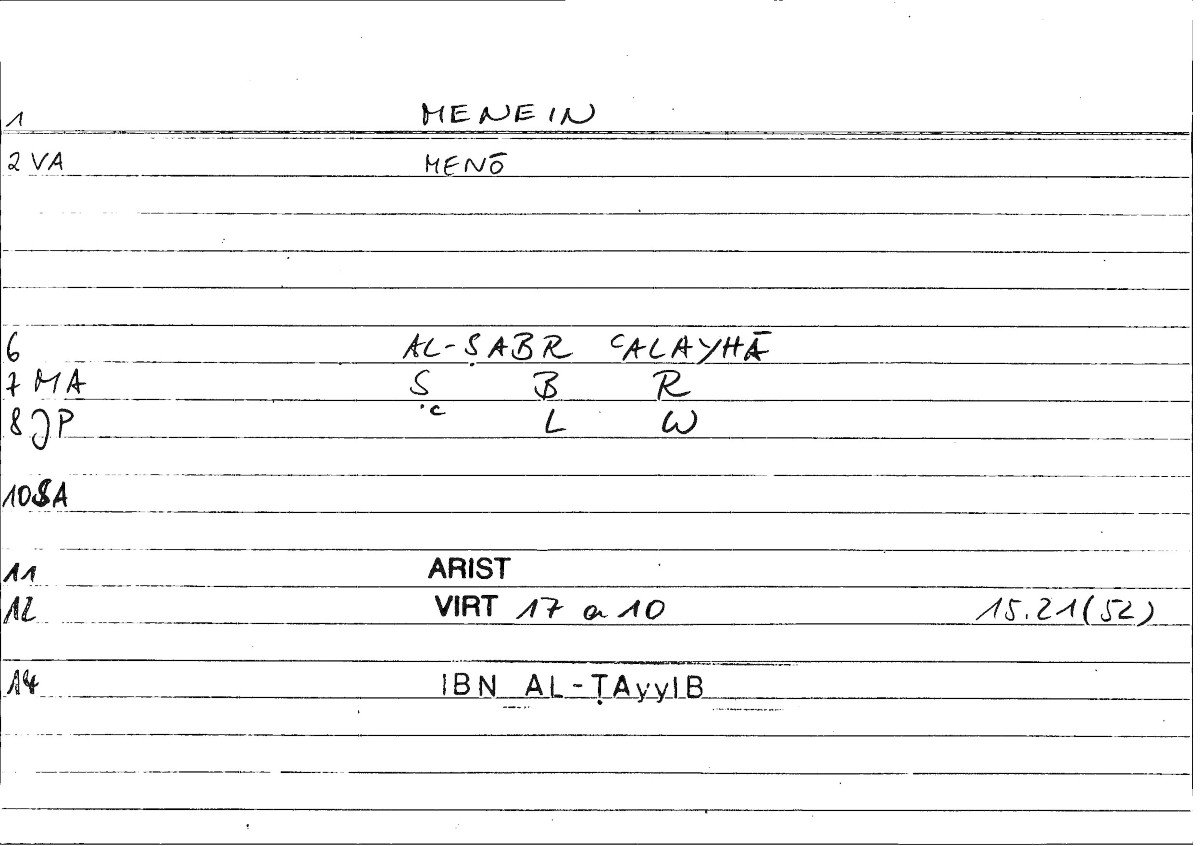 1 MENEIN
2 VA MENŌ
6 AL-ṢABR ʿALAYHĀ
7 MA Ṣ B R
8 JP ʿ L W
10 SA
11 ARIST
12 VIRT 17 a 10 15.21(52)
14 IBN AL-ṬAyyIB